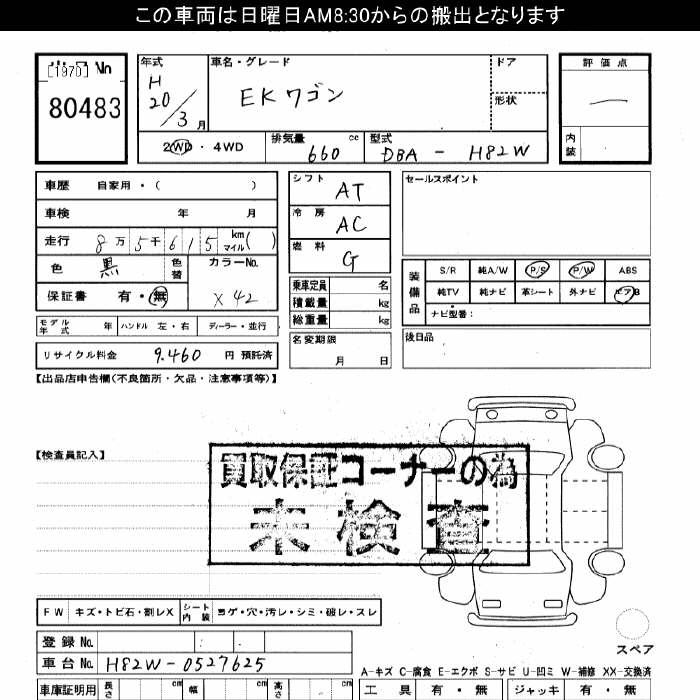 この車両は日曜日AM8:30からの搬出となります
[1970] No
80483
年式
H
20/3 月
車名・グレード
EKワゴン
ドア
形状
評価点
内装
2WD・4WD
排気量 cc
660
型式
DBA - H82W
車歴 自家用・( )
車検 年 月
走行 8万5千615 km マイル( )
色 黒 色替
カラーNo.
X42
保証書 有・無
モデル年式 年 ハンドル 左・右 ディーラー・並行
リサイクル料金 9.460 円 預託済
シフト AT
冷房 AC
燃料 G
乗車定員 名
積載量 kg
総重量 kg
名変期限
月 日
セールスポイント
装備品
S/R 純A/W P/S P/W ABS
純TV 純ナビ 革シート 外ナビ エアB
ナビ型番:
後日品
【出品店申告欄(不良箇所・欠品・注意事項等)】
【検査員記入】
買取保証コーナーの為
未検査
FW キズ・トビ石・割レX シート内装 コゲ・穴・汚レ・シミ・破レ・スレ
登録No.
車台No. H82W-0527625
スペア
A-キズ C-腐食 E-エクボ S-サビ U-凹ミ W-補修 XX-交換済
車庫証明用 長さ cm 幅 cm 高さ cm
工具 有・無 ジャッキ 有・無